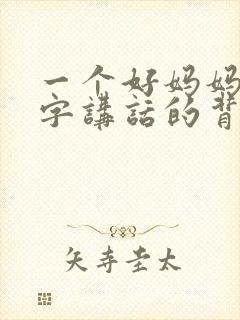 一个好妈妈
字講話的背
矢寺圭太